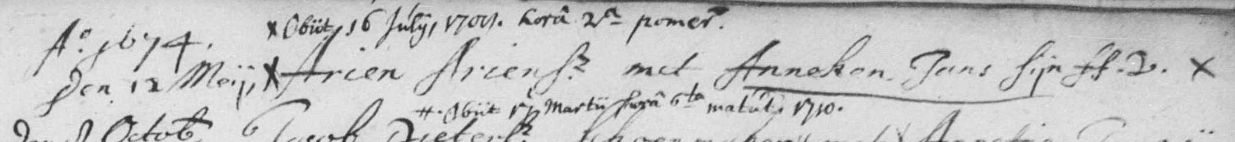 Ao. 1674.
x Obiit 16 Julij, 1701. horâ 2a. pomer.
den 12 Meij, x Arien Ariensz. met Anneken Jans sijn H.V. x
#. Obiit 17 Martii horâ 6ta matut. 1710.
Octob. Jacob Pietersz.